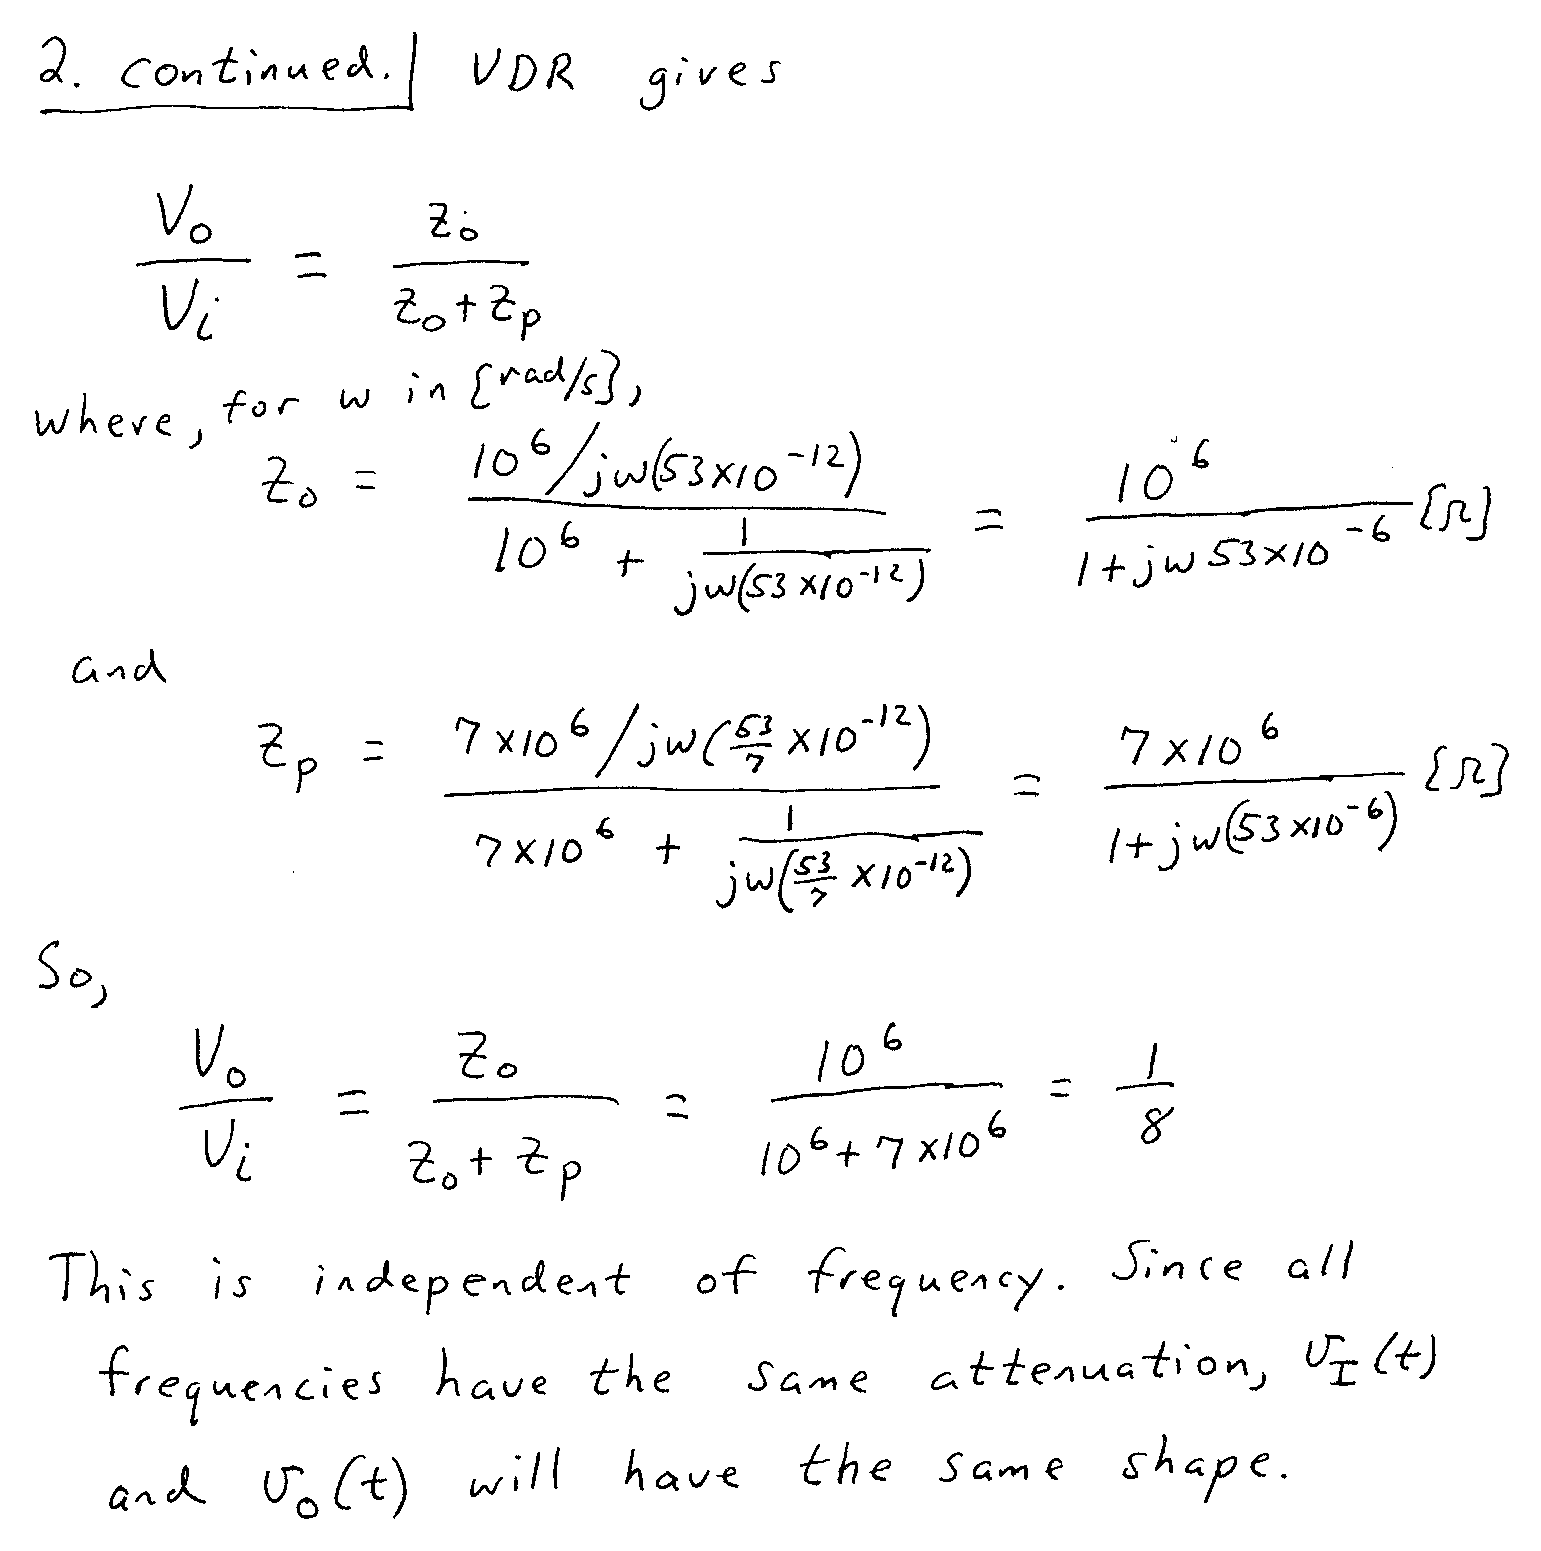 2. continued. VDR gives
Vo/Vi = Zo/(Zo+Zp)
where, for w in {rad/s},
Zo = (10^6/jw(53×10^-12))/(10^6 + 1/(jw(53×10^-12))) = 10^6/(1+jw53×10^-6) [Ω]
and
Zp = (7×10^6/jw(53/7 ×10^-12))/(7×10^6 + 1/(jw(53/7 ×10^-12))) = 7×10^6/(1+jw(53×10^-6)) [Ω]
So,
Vo/Vi = Zo/(Zo+Zp) = 10^6/(10^6+7×10^6) = 1/8
This is independent of frequency. Since all
frequencies have the same attenuation, vI(t)
and vo(t) will have the same shape.